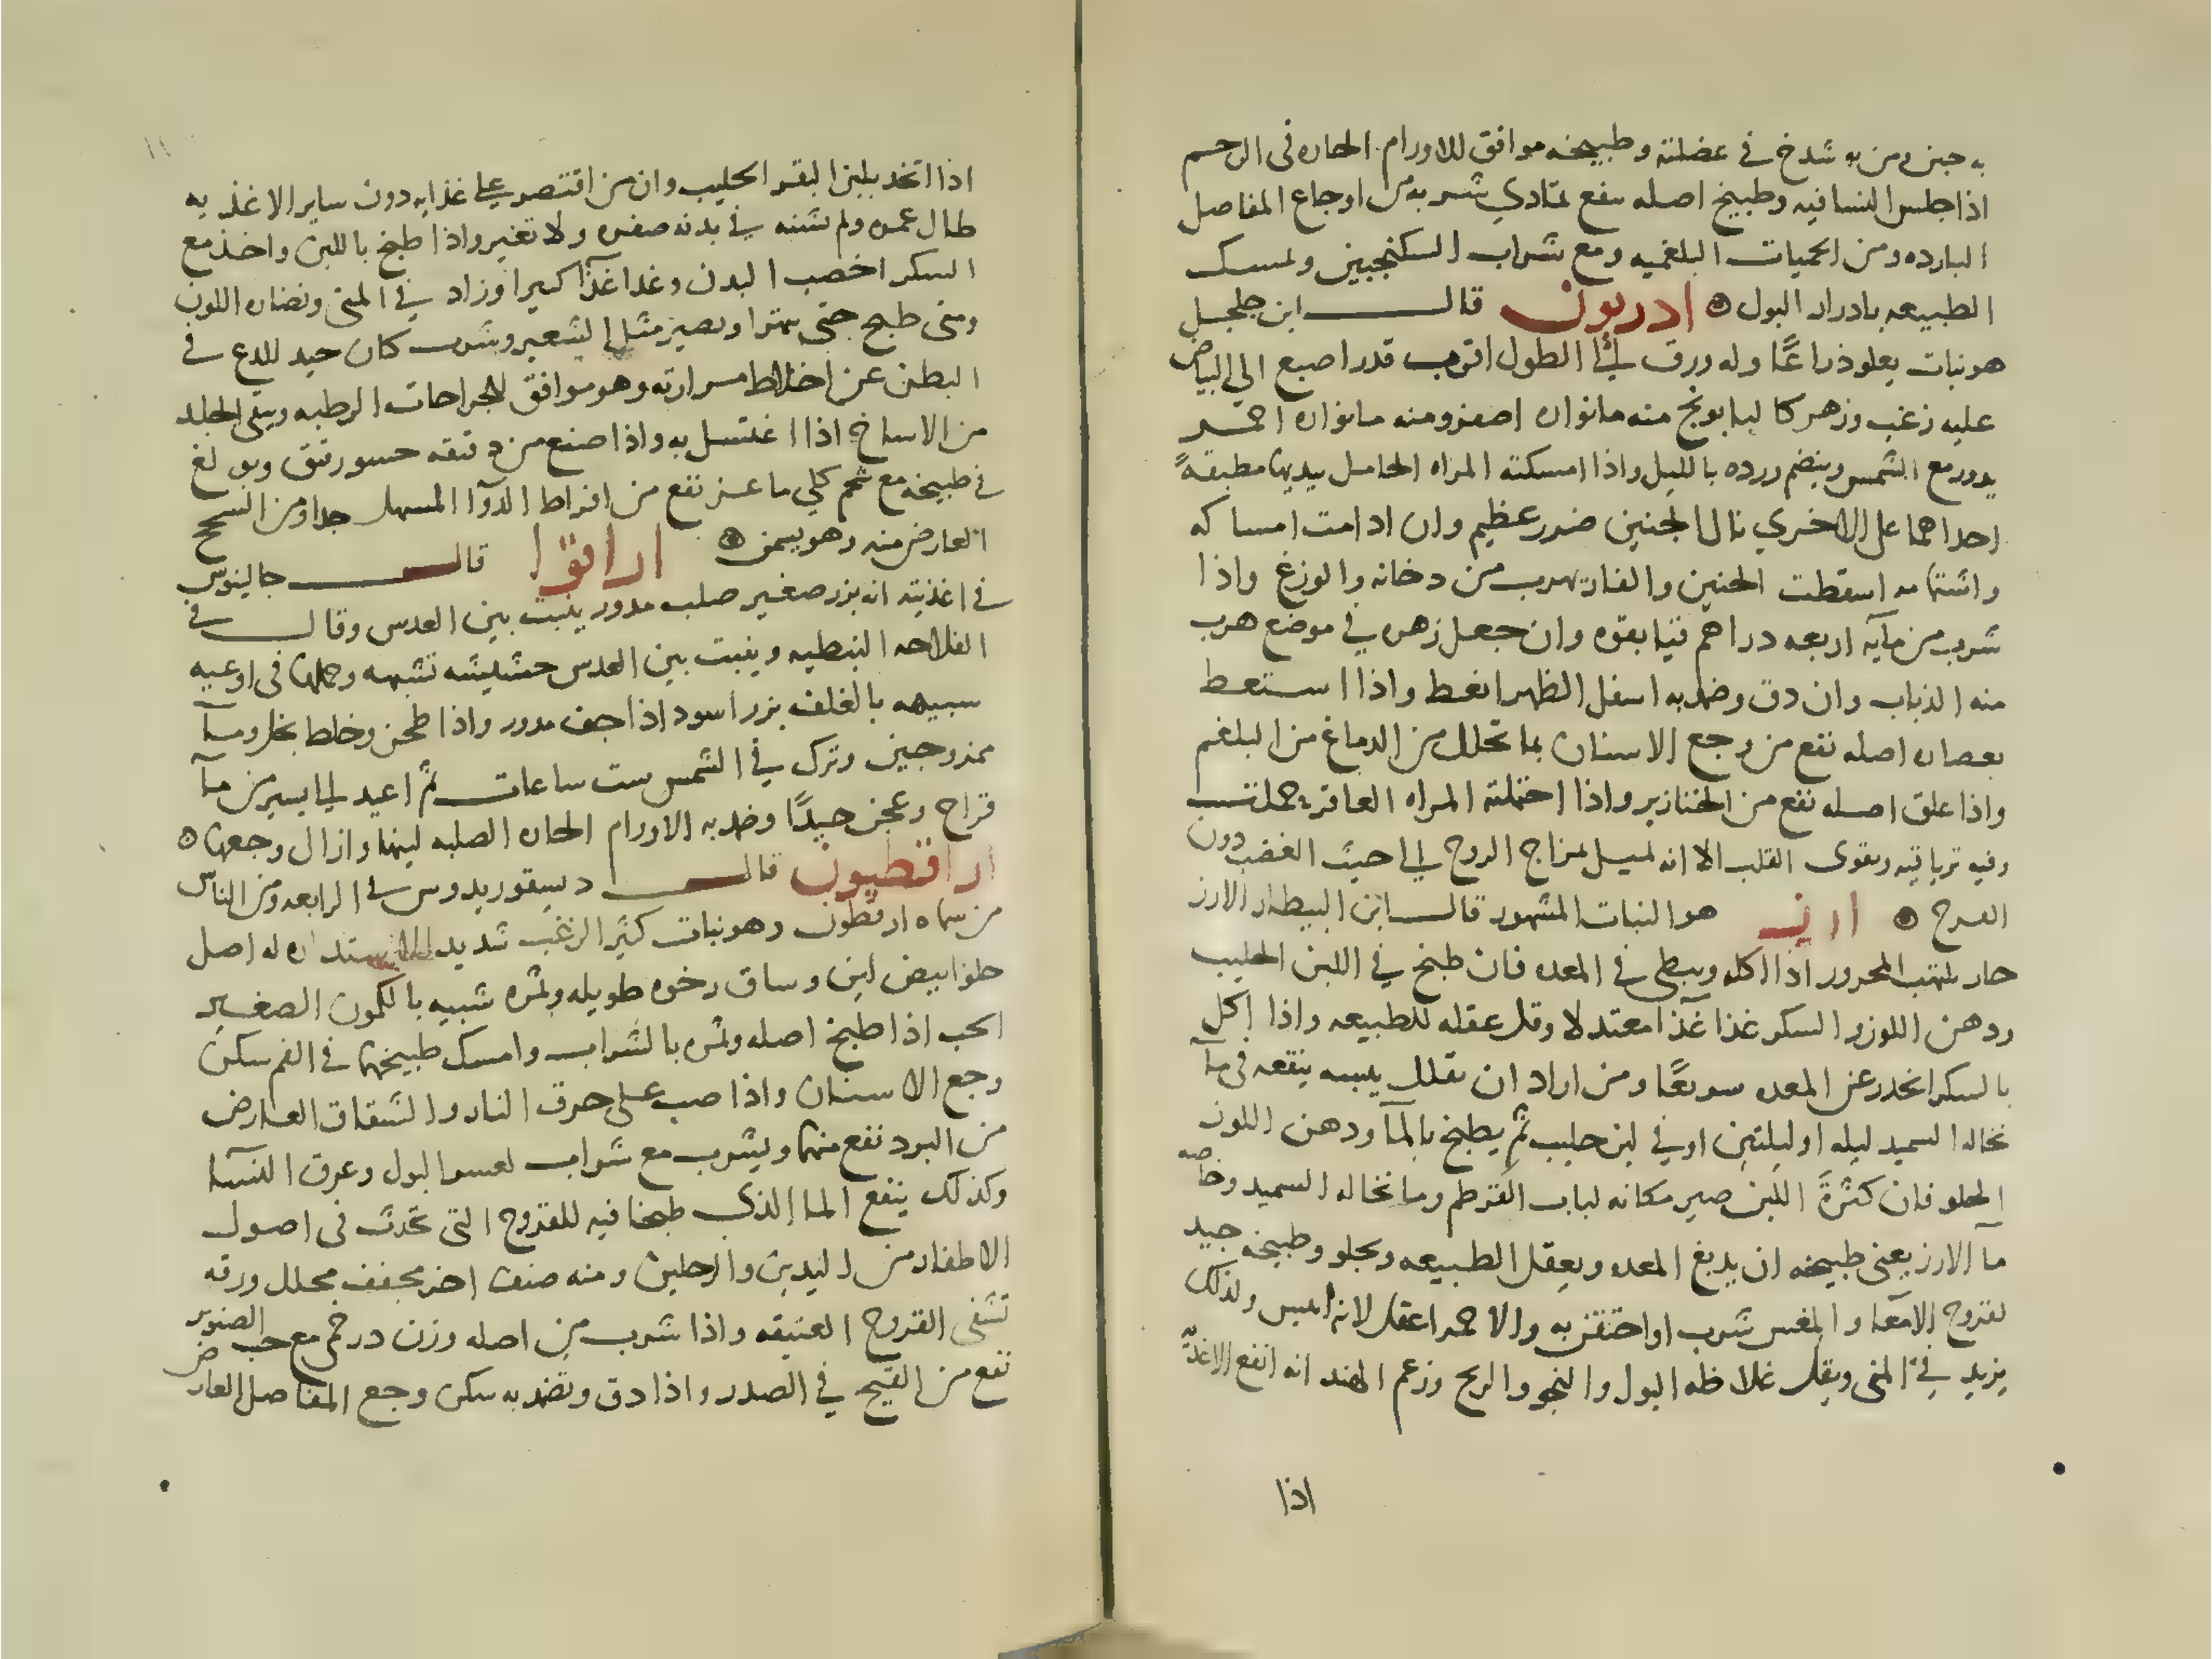 به جبن ومن به شدخ في عضلته وطبيخه موافق للاورام الحاره فى الرحم
اذا جلس النسا فيه وطبيخ اصله ينفع لمتادي شربه من اوجاع المفاصل
البارده ومن الحميات البلغميه ومع شراب السكنجبين ولمسك
الطبيعه بادرار البول ادريون قال ابن جلجل
هو نبات يعلو ذراعًا وله ورق الى الطول اقرب قدر اصبع الي البياض
عليه زغب وزهر كالبابونج منه ما نواره اصفر ومنه ما نواره احمر
يدور مع الشمس وينضم ورده بالليل واذا امسكته المراه الحامل بيديها مطبقةً
احداهما على الاخري نال الجنين ضرر عظيم وان ادامت امساكه
واشتمامه اسقطت الجنين والفار يهرب من دخانه والوزغ واذا
شرب من مآيه اربعه دراهم قيا بقوه وان جعل زهره في موضع هرب
منه الذباب وان دق وضمد به اسفل الظهر انعظ واذا استعط
بعصاره اصله نفع من وجع الاسنان بما تحلل من الدماغ من البلغم
واذا علق اصله نفع من الخنازير واذا احتملته المراه العاقر حملت
وفيه ترياقيه ويقوى القلب الا انه لميل لمزاج الروح الى حيث الغضب دون
الفرح ارز هو النبات المشهور قال ابن البيطار الارز
حار يلهب المحرور اذا اكله ويبطي في المعده فان طبخ في اللبن الحليب
ودهن اللوز والسكر غذا غذآ معتدلا وقل عقله للطبيعه واذا اكل
بالسكر انحدر عن المعده سريعًا ومن اراد ان يقلل يبسه ينقعه فى مآ
نخاله السميد ليله او ليلتين او في لبن حليب ثم يطبخ بالمآ ودهن اللوز
الحلو فان كثرة اللبن صير مكانه لباب القرطم وما نخاله السميد وخاصه
مآ الارز يعنى طبيخه ان يدبغ المعده ويعقل الطبيعه ويجلو وطبيخه جيد
لقروح الامعآ والمغس شرب او احتقن به والاحمر اعقل لانه ايبس ولذلك
يزيد في المنى ويقل غلاظه البول والنجو والريح وزعم الهند انه انفع الاغذيه
اذا
١١
اذا اتخذ بلبن البقر الحليب وان من اقتصر علي غذايه دون ساير الاغذيه
طال عمره ولم تشنه في بدنه صفره ولا تغير واذا طبخ باللبن واخذ مع
السكر اخصب البدن وغذا غذآ كثيرا وزاد في المنى ونضاره اللون
ومتى طبخ حتى يتهرا ويصير مثل الشعير وشرب كان جيد للدع في
البطن عن اخلاط مراريه وهو موافق للجراحات الرطبه وينقى الجلد
من الاساخ اذا اغتسل به واذا صنع من دقيقه حسو رقيق وبولغ
في طبيخه مع شحم كلي ماعز نفع من افراط الدوآ المسهل جدا ومن السحج
العارض منه وهو يسمن اراقوا قال جالينوس
في اغذيته انه بزر صغير صلب مدور ينبت بين العدس وقال في
الفلاحه النبطيه وينبت بين العدس حشيشه تشبهه وحملها فى اوعيه
شبيهه بالغلف بزر اسود اذا جف مدور واذا طحن وخلط بخل ومآ
ممزوجين وترك في الشمس ست ساعات ثم اعيد الى يسير من مآ
قراح وعجن جيدًا وضمد به الاورام الحاره الصلبه لينها وازال وجعها
ارقطيون قال ديسقوريدوس في الرابعه ومن الناس
من سماه ارقطون وهو نبات كثير الزغب شديد الاستداره له اصل
حلو ابيض لين وساق رخوه طويله وثمره شبيه بالكمون الصغير
الحب اذا طبخ اصله وثمره بالشراب وامسك طبيخها في الفم سكن
وجع الاسنان واذا صب على حرق النار والشقاق العارض
من البرد نفع منها ويشرب مع شراب لعسر البول وعرق النسآ
وكذلك ينفع الما الذي طبخا فيه للقروح التى تحدث فى اصول
الاظفار من اليدين والرجلين ومنه صنف اخر مجفف محلل ورقه
تشفى القروح العتيقه واذا شرب من اصله وزن درخمي مع حب الصنوبر
نفع من القيح في الصدر واذا دق وتضمد به سكن وجع المفاصل العارض